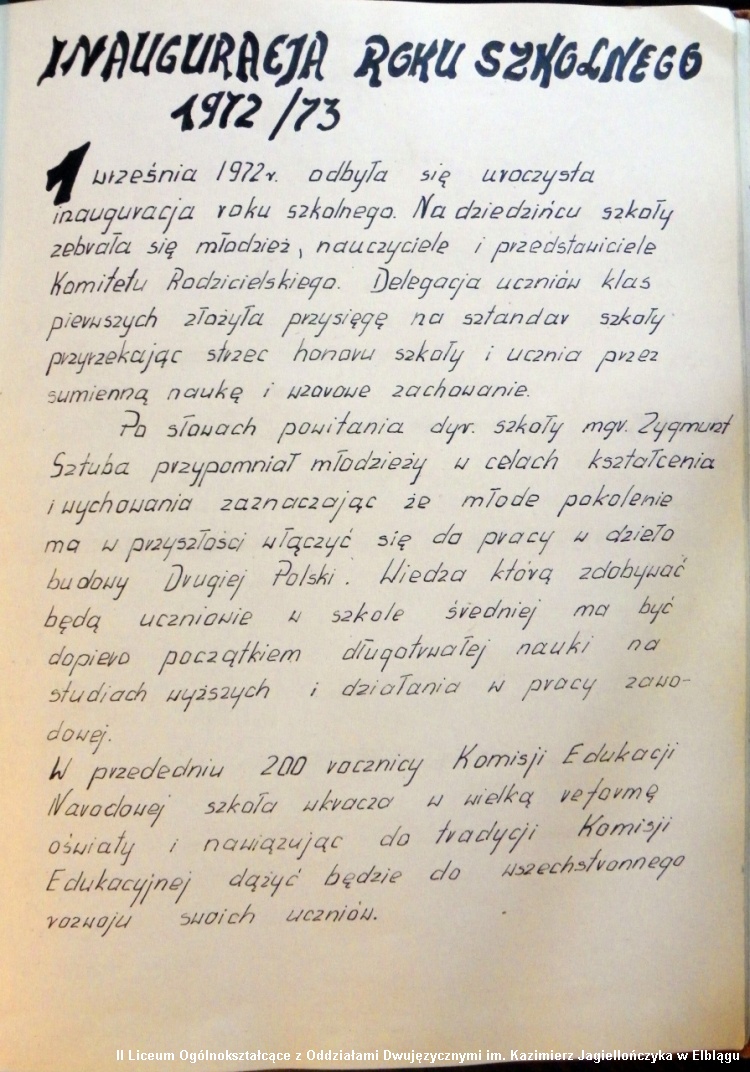 INAUGURACJA ROKU SZKOLNEGO
1972/73
1 września 1972r. odbyła się uroczysta
inauguracja roku szkolnego. Na dziedzińcu szkoły
zebrała się młodzież, nauczyciele i przedstawiciele
Komitetu Rodzicielskiego. Delegacja uczniów klas
pierwszych złożyła przysięgę na sztandar szkoły
przyrzekając strzec honoru szkoły i ucznia przez
sumienną naukę i wzorowe zachowanie.
Po słowach powitania dyr. szkoły mgr. Zygmunt
Sztuba przypomniał młodzieży w celach kształcenia
i wychowania zaznaczając że młode pokolenie
ma w przyszłości włączyć się do pracy w dzieło
budowy Drugiej Polski. Wiedza którą zdobywać
będą uczniowie w szkole średniej ma być
dopiero początkiem długotrwałej nauki na
studiach wyższych i działania w pracy zawo-
dowej.
W przededniu 200 rocznicy Komisji Edukacji
Narodowej szkoła wkracza w wielką reformę
oświaty i nawiązując do tradycji Komisji
Edukacyjnej dążyć będzie do wszechstronnego
rozwoju swoich uczniów.
II Liceum Ogólnokształcące z Oddziałami Dwujęzycznymi im. Kazimierz Jagiellończyka w Elblągu